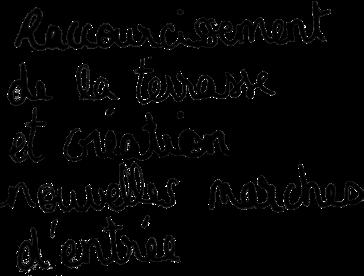 Raccourcissement
de la terrasse
et création
nouvelles marches
d'entrée